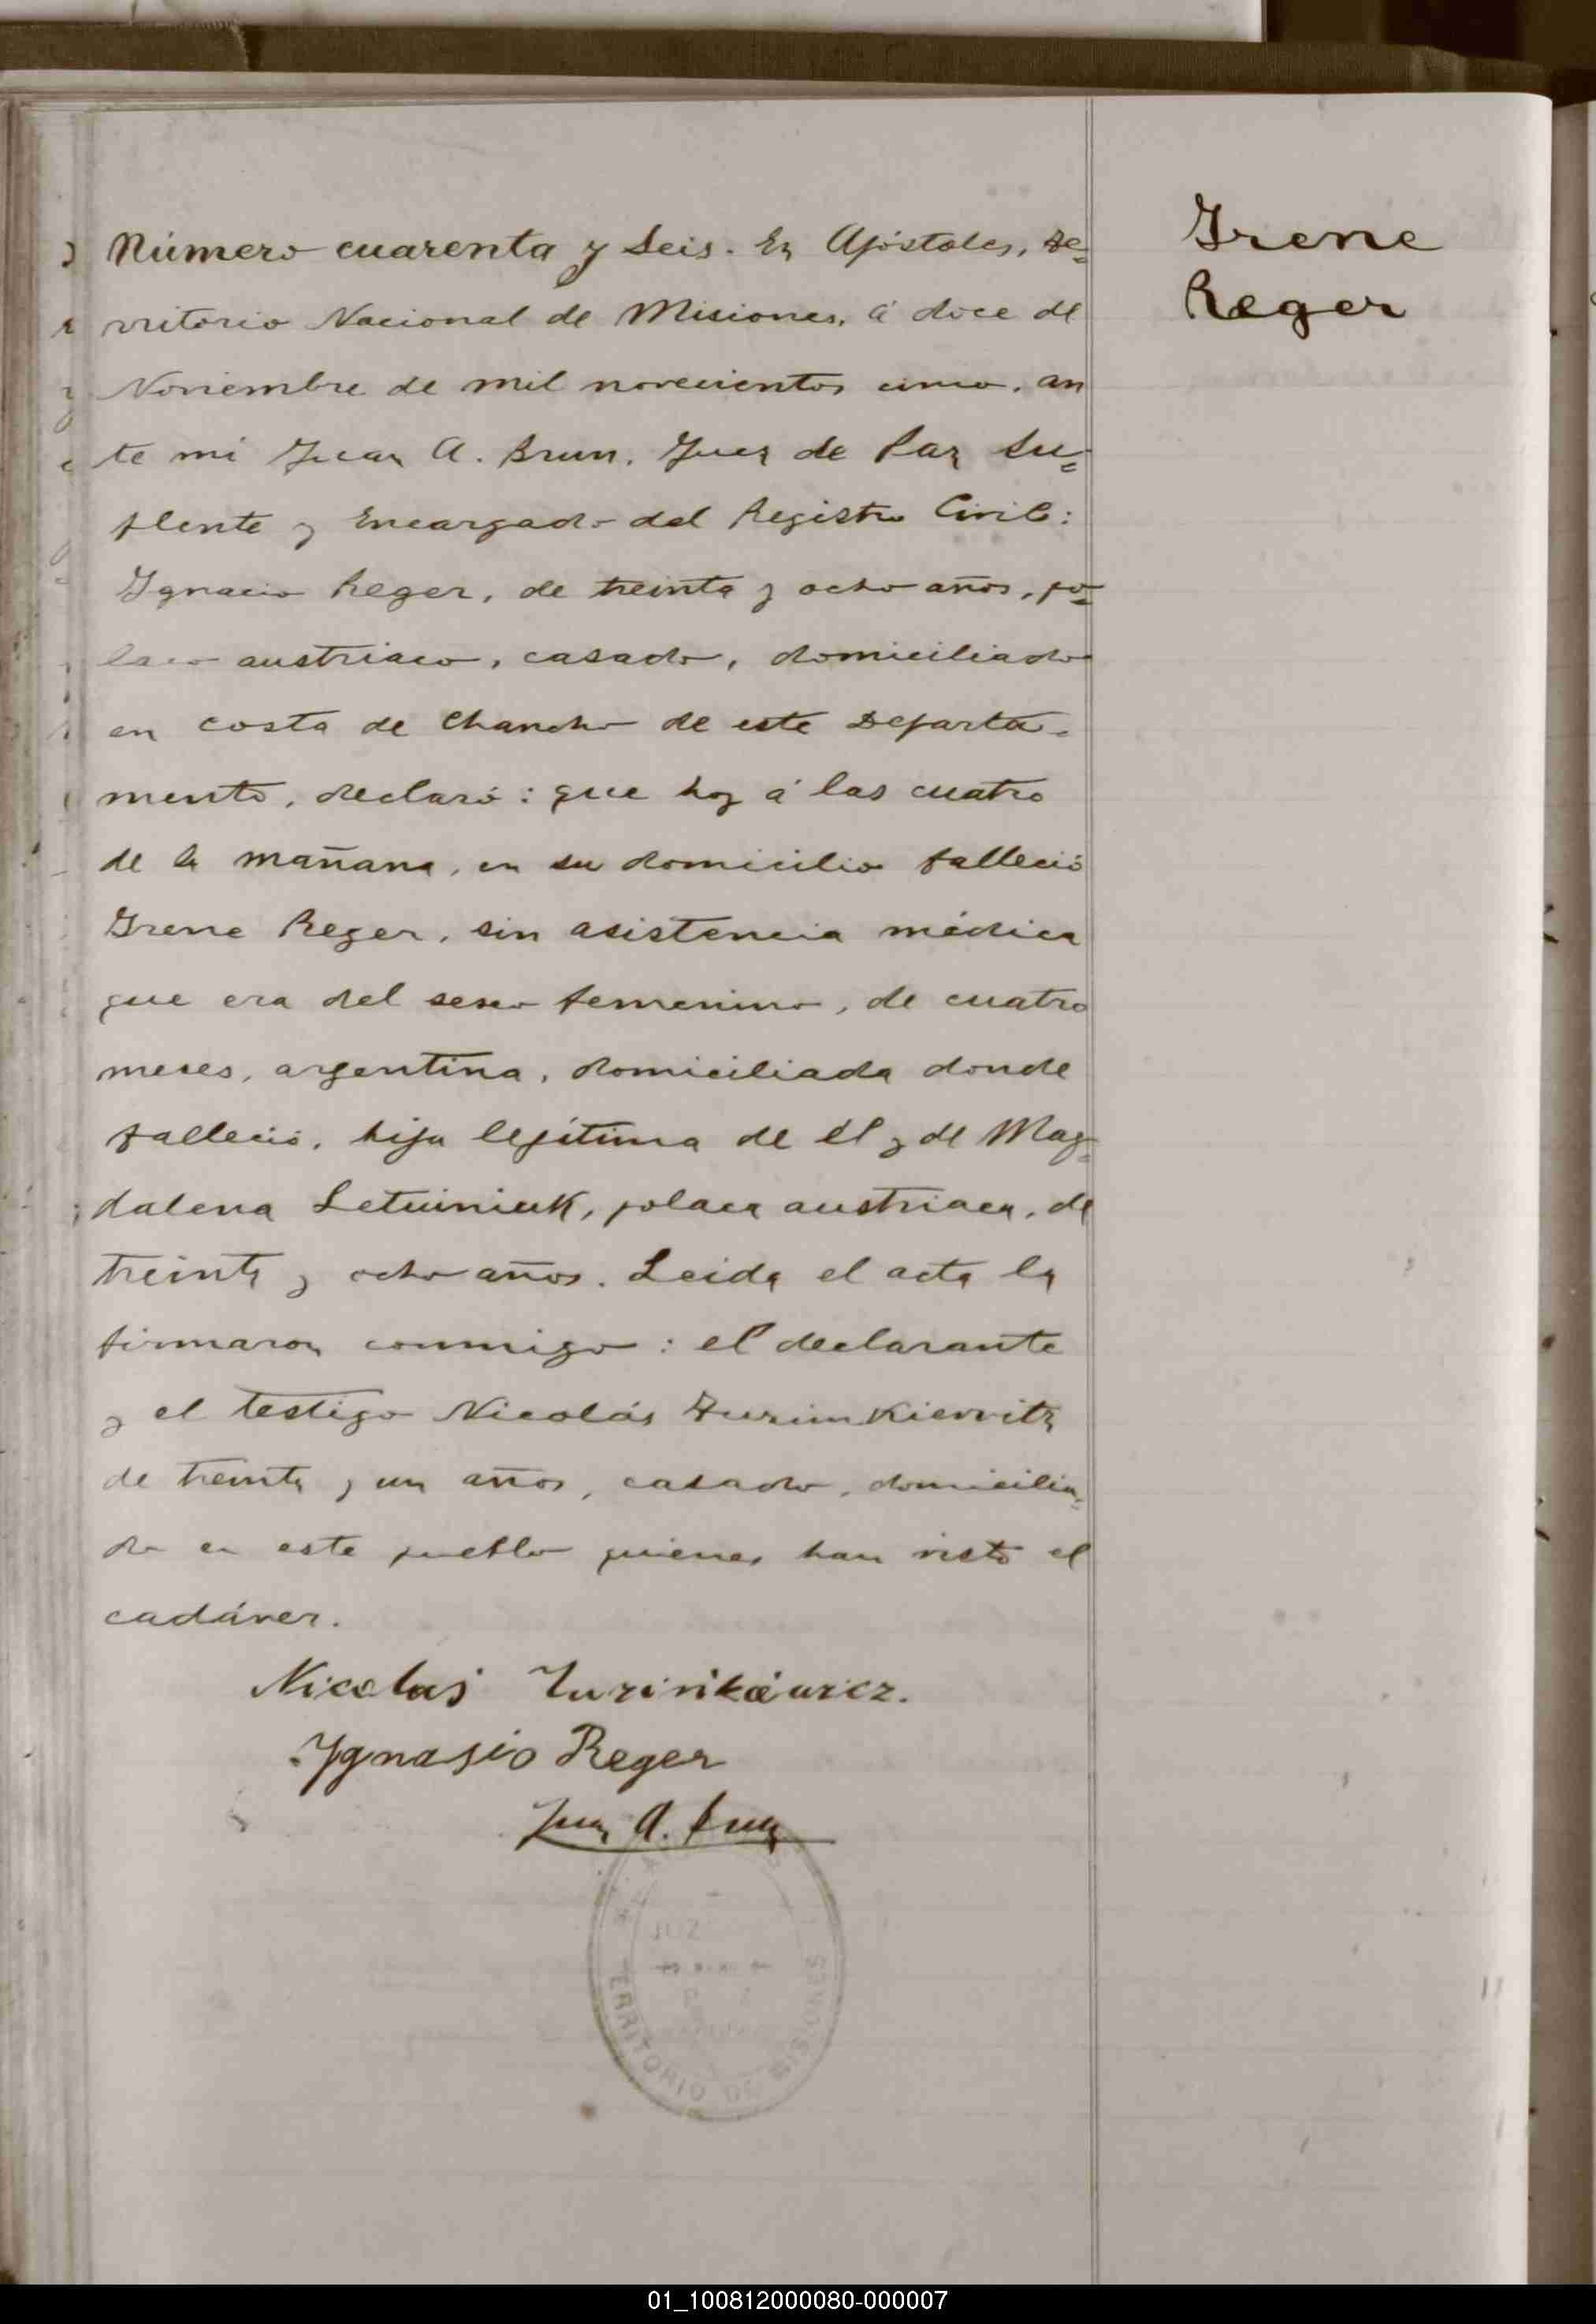 Número cuarenta y Seis. En Apóstoles, Te=
rritorio Nacional de Misiones, á doce de
Noviembre de mil novecientos cinco, an
te mi Juan A. Brun, Juez de Paz Su=
plente y Encargado del Registro Civil:
Ignacio Reger, de treinta y ocho años, po=
laco austriaco, casado, domiciliado
en costa de Chancho de este Departa-
mento, declaró: que hoy á las cuatro
de la mañana, en su domicilio falleció
Irene Reger, sin asistencia médica
que era del sexo femenino, de cuatro
meses, argentina, domiciliada donde
falleció, hija legítima de él y de Mag-
dalena Letwiniuk, polaca austriaca, de
treinta y ocho años. Leida el acta la
firmaron conmigo: el declarante
y el testigo Nicolás
de treinta y un años, casado, domicilia-
do en este pueblo quienes han visto el
cadáver.
Nicolas
Ygnasio Reger
Juan A. Brun
JUZ
TERRITORIO DE MISIONES
Irene
Reger
01_100812000080-000007